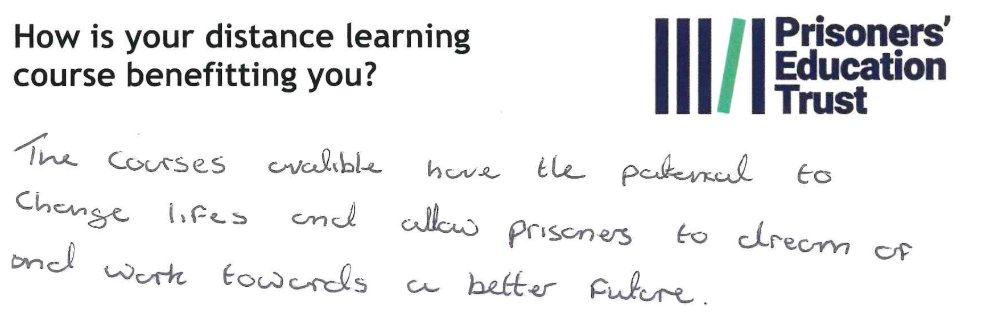 How is your distance learning
course benefitting you?
Prisoners'
Education
Trust
The courses avalible have the potenial to
Change lifes and allow prisoners to dream of
and work towards a better future.